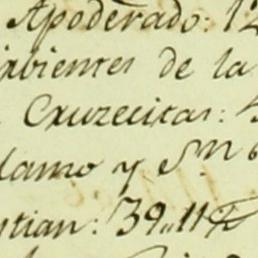 Apoderado: 12
xbientes de la
Cruzecitas:
lamo y Sn
tian: 39,,11